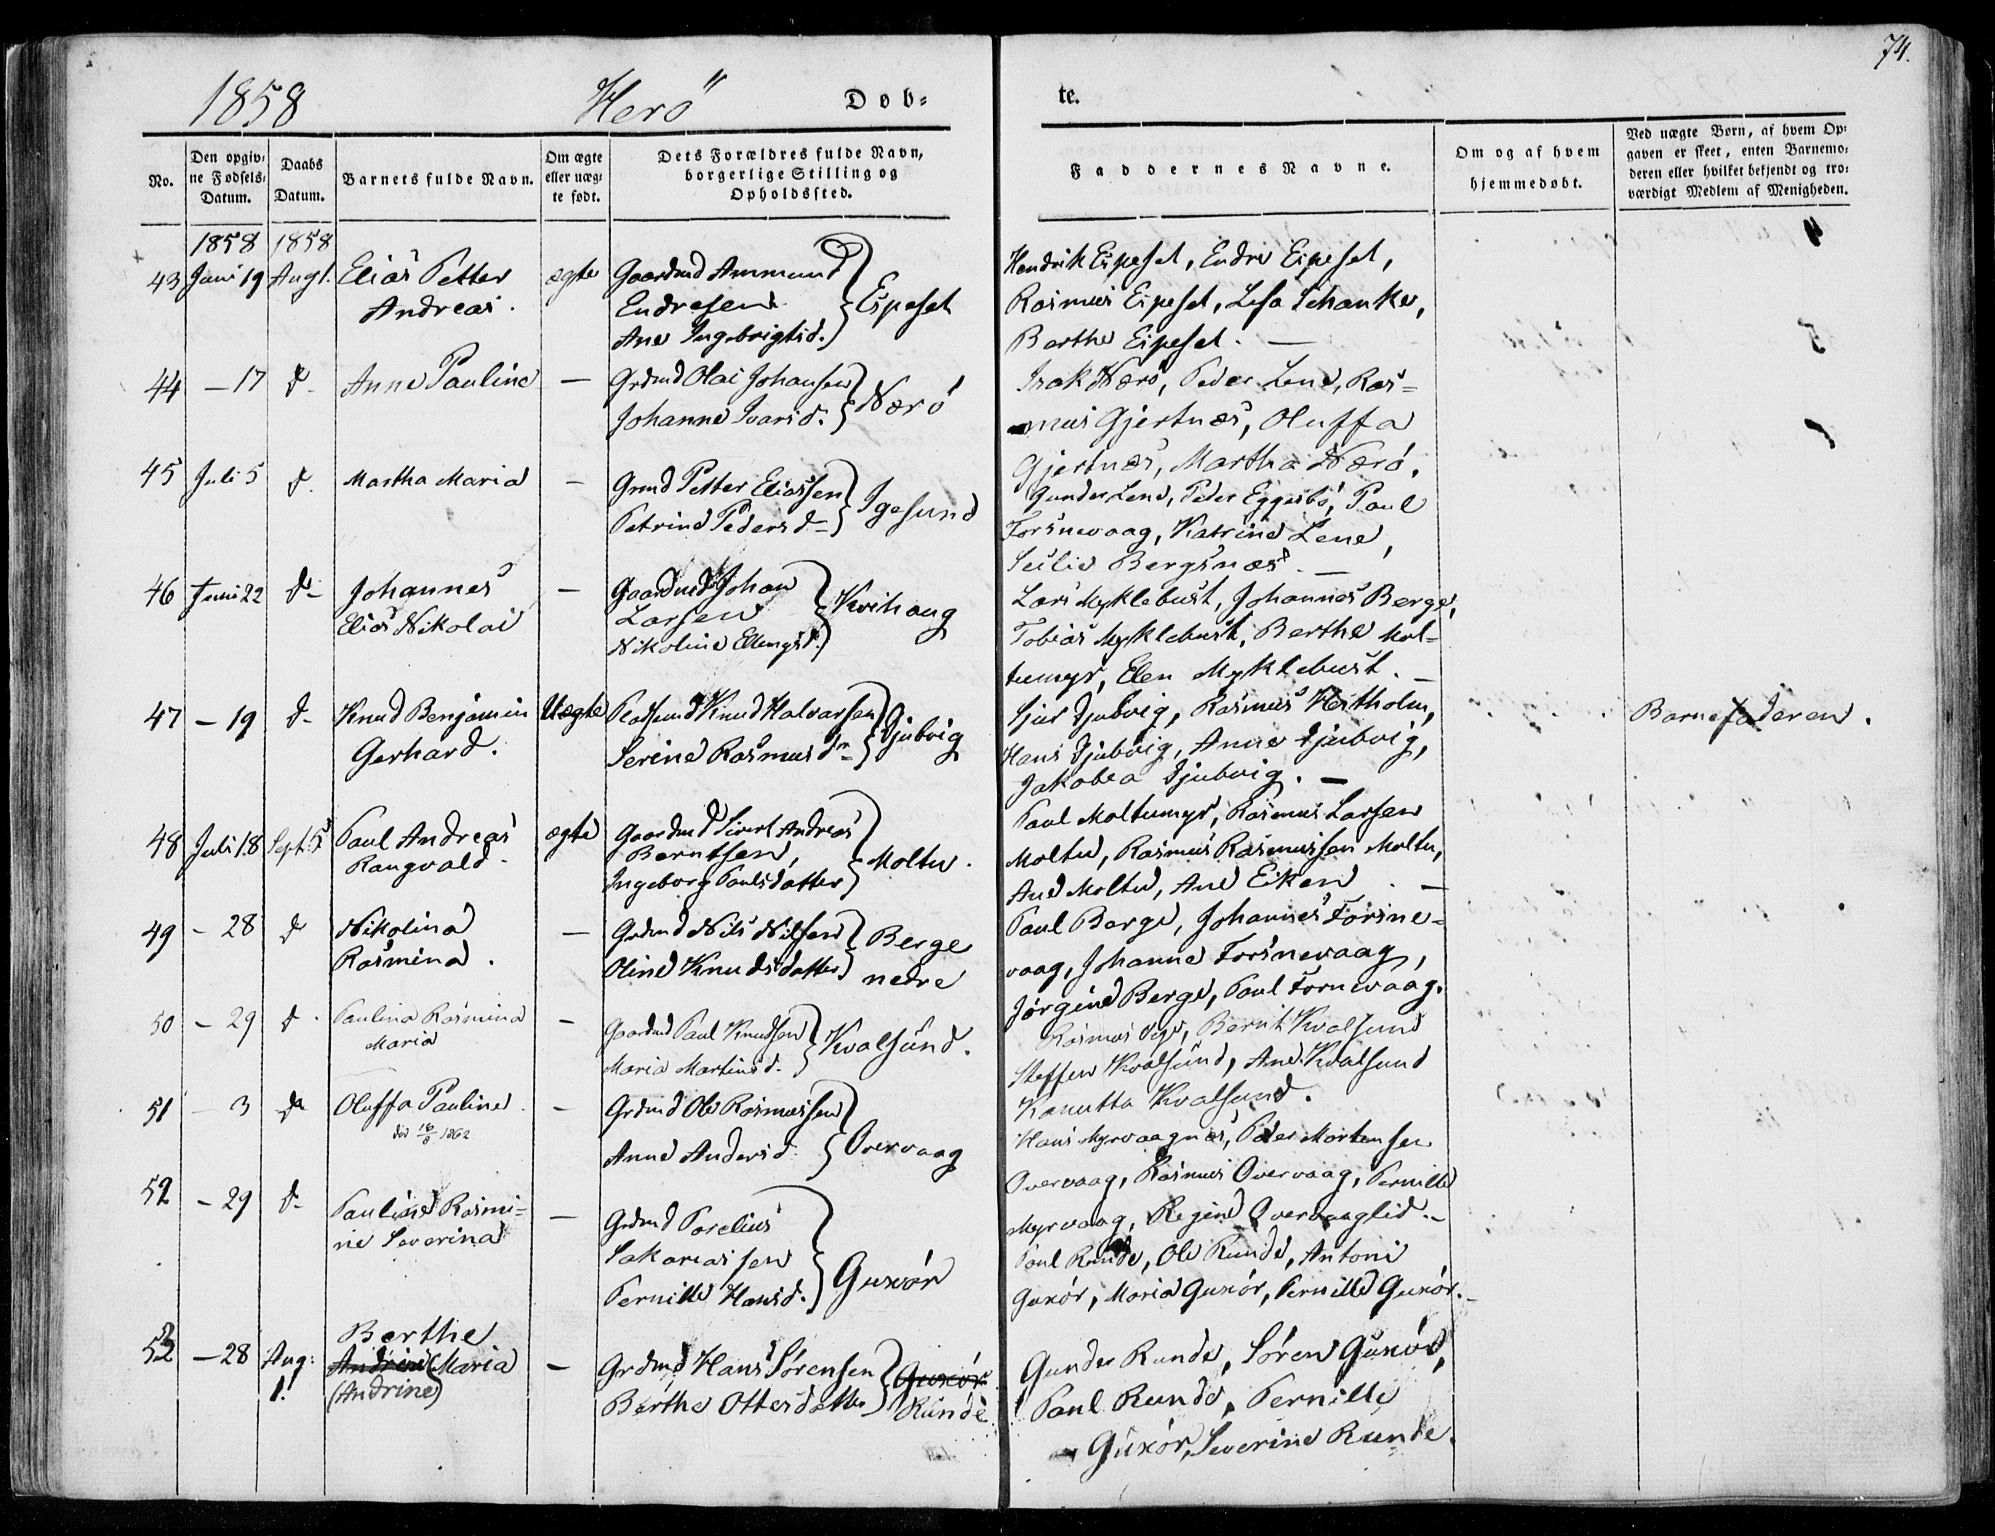 74.
1858 Herö Døb-
te.
No.
Den opgiv-
ne Fødsels-
Datum.
Daabs
Datum.
Barnets fulde Navn.
Om ægte
eller uæg-
te født.
Dets Forældres fulde Navn,
borgerlige Stilling og
Opholdssted.
Faddernes Navne.
Om og af hvem
hjemmedøbt.
Ved uægte Børn, af hvem Op-
gaven er skeet, enten Barnemo-
deren eller hvilket bekjendt og tro-
værdigt Medlem af Menigheden.
1858 1858
43 Juni 19 Aug 1. Elias Petter
Andreas.
ægte
Gaardmd Ammund
Endresen
Ane Ingebrigtsd.
Eipeset
Hendrik Eipeset, Endre Eipeset,
Rasmus Eipeset, Lesa Schanke,
Berthe Eipeset. —
44 — 17 d- Anne Pauline —
Grdmd Olai Johansen
Johanne Ivarsd.
Nærö
Isak Nærö, Peder Lene, Ras-
mus Gjertnæs, Oluffa
Gjertnæs, Martha Nærö.
45 Juli 5 d. Martha Maria —
Grmd Petter Eliassen
Petrine Pedersd-
Igesund
Gunder Lene, Peder Eggesbö, Paul
Forsnevaag, Katrine Lene,
Seilie Bergsnæs. —
46 Juni 22 d- Johannes
Elias Nikolai
—
Gaardmd Johan
Larsen
Nikoline Ellingsd.
Kvihaug
Lars Myklebust, Johannes Berge,
Tobias Myklebust, Berthe Mol-
tumyr, Elen Myklebust. —
47 — 19 d- Knud Benjamin
Gerhard.
Uægte
Pladsmd Knud Halvarsen
Serine Rasmusdn
Djubvig
Sjur Djubvig, Rasmus Hestholm,
Hans Djubvig, Anne Djubvig,
Jakobea Djubvig. —
Barnefaderen.
48 Juli 18 Sept. 5 Paul Andreas
Rangvald.
ægte
Gaardmd Sivert Andreas
Berntsen,
Ingeborg Paulsdatter
Moltu.
Paul Moltumyr, Rasmus Larsen
Moltu, Rasmus Rasmussen Moltu,
Ane Moltu, Ane Eiken. —
49 - 28 d Nikolina
Rasmina.
—
Grdmd Nils Nilsen
Oline Knudsdatter
Berge
nedre
Paul Berge, Johannes Forsne-
vaag, Johanne Forsnevaag,
Jörgine Berge, Paul Fornevaag.
50 - 29 d. Paulina Rasmina
Maria
—
Gaardmd Paul Knudsen
Maria Martinsd.
Kvalsund.
Rasmus , Bernt Kvalsund
Steffen Kvalsund, Ane Kvalsund
Kanutta Kvalsund.
51 - 3 do Oluffa Pauline.
död 16/8 1862
—
Grdmd Ole Rasmussen
Anne Andersd.
Overvaag
Hans Myrvaagnes, Peder Mortensen
Overvaag, Rasmus Overvaag, Pernille
Myrvaag, Regine Overvaaglid.-
52 - 29 d- Pauline Rasmi-
ne Severina
—
Grdmd Poselius
Sakariassen
Pernille Hansd.
Guxör
Paul Runde, Ole Runde, Antoni
Guxör, Maria Guxör, Pernille Guxör.-
53 - 28 Aug:
1.
Berthe
Andrine Maria
(Andrine)
—
Grdmd Hans Sörensen
Berthe Ottersdatter
Guxör
Runde
Gunder Runde, Sören Guxör,
Paul Runde, Pernille
Guxör, Severine Runde.